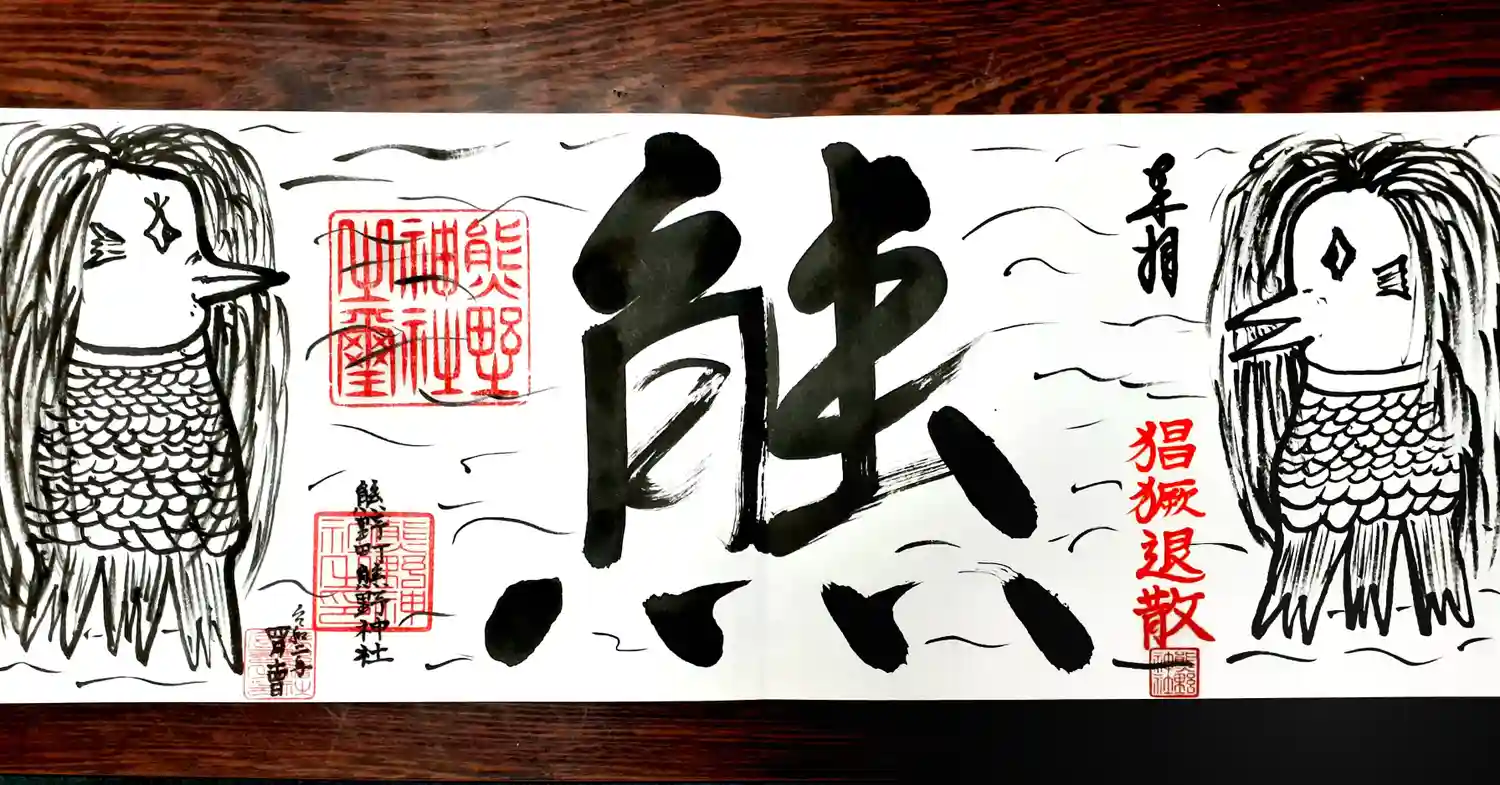 奉拝
猖獗退散
熊野神社
熊
熊野
神社
熊野町熊野神社
熊野神
社之印
令和二年